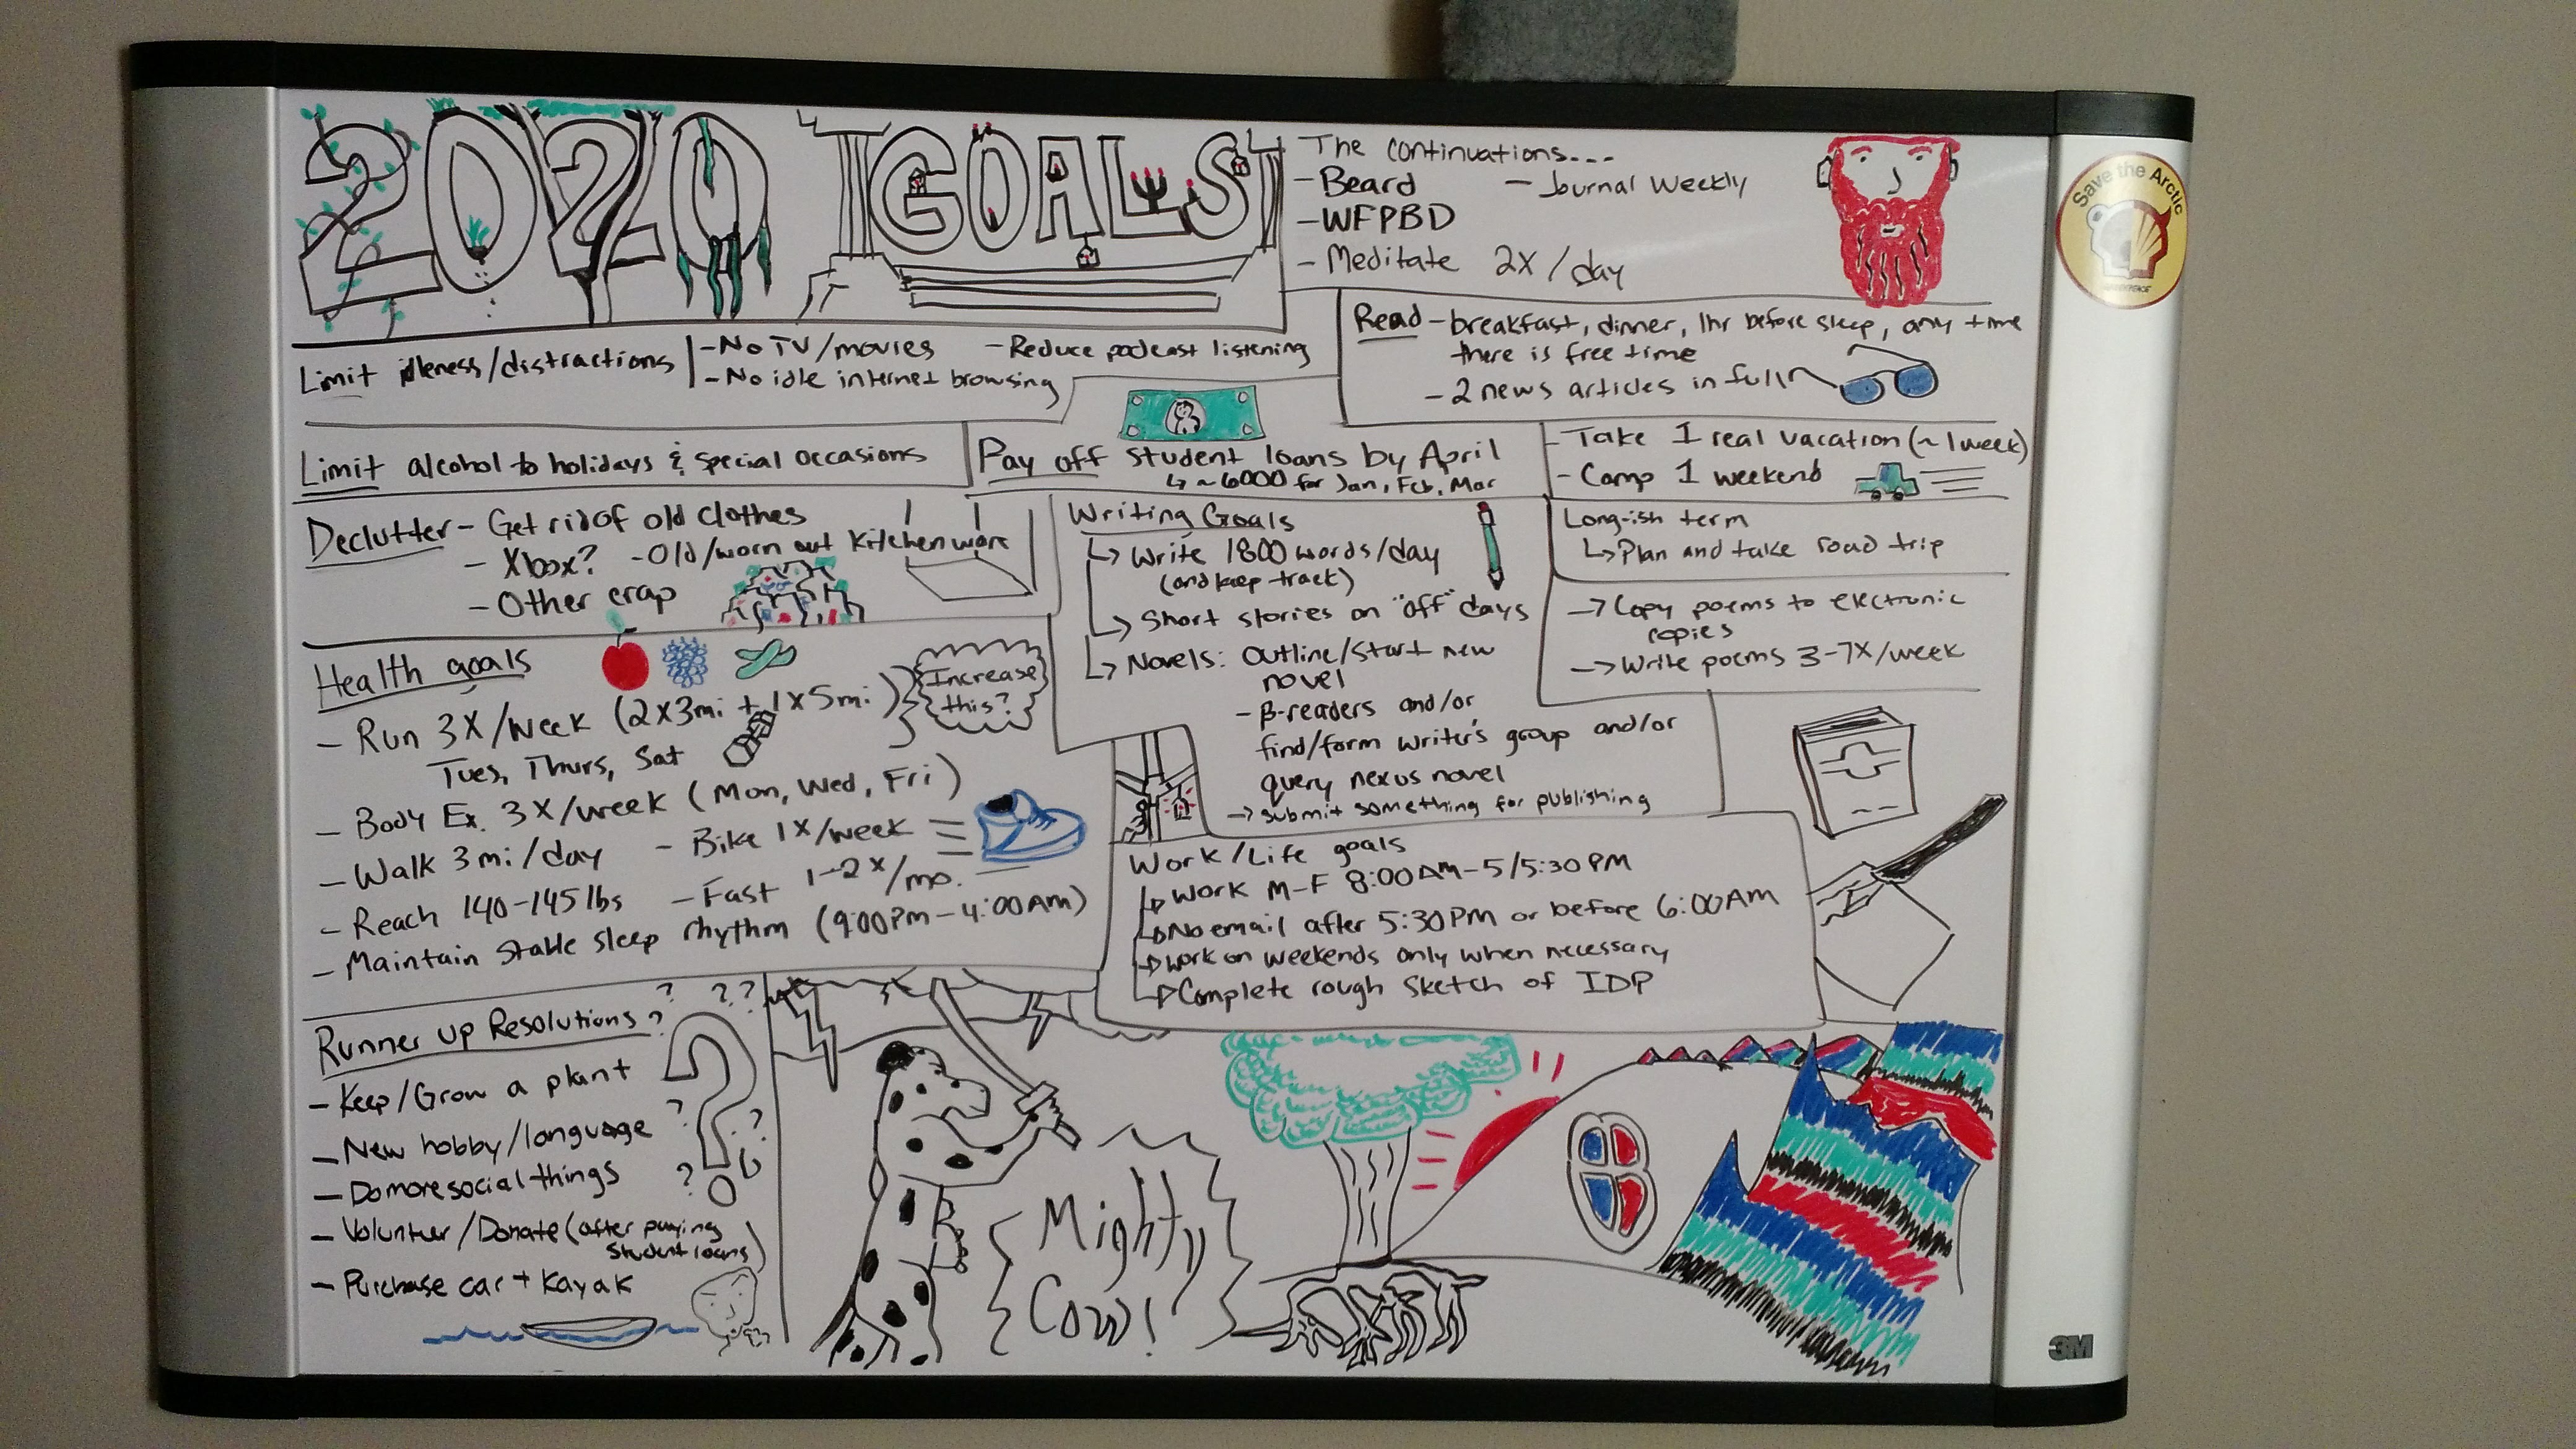 2020 GOALS
The continuations...
- Beard - Journal Weekly
- WFPBD
- Meditate 2X/day
Save the Arctic
GREENPEACE
Limit idleness/distractions
- No TV/movies - Reduce podcast listening
- No idle internet browsing
Read - breakfast, dinner, 1hr before sleep, any time
there is free time
- 2 news articles in full
Limit alcohol to holidays & special occasions
Pay off student loans by April
↳ ~6000 for Jan, Feb, Mar
- Take 1 real vacation (~1week)
- Camp 1 weekend
Declutter - Get rid of old clothes
- Xbox? - Old/worn out kitchenware
- Other crap
Writing Goals
↳ Write 1800 words/day
(and keep track)
↳ Short stories on "off" days
↳ Novels: Outline/start new
novel
- β-readers and/or
find/form writer's group and/or
query nexus novel
→ submit something for publishing
Long-ish term
↳ Plan and take road trip
→ Copy poems to electronic
copies
→ Write poems 3-7X/week
Health goals
- Run 3X/week (2X3mi + 1X5mi)
Increase
this?
Tues, Thurs, Sat
- Body Ex. 3X/week (Mon, Wed, Fri)
- Walk 3mi/day - Bike 1X/week
- Reach 140-145lbs - Fast 1-2X/mo.
- Maintain stable sleep rhythm (9:00PM-4:00AM)
Work/Life goals
↳ Work M-F 8:00AM-5/5:30PM
↳ No email after 5:30PM or before 6:00AM
↳ Work on weekends only when necessary
↳ Complete rough sketch of IDP
Runner up Resolutions
? ? ? ?
- Keep/Grow a plant
- New hobby/language
- Do more social things
- Volunteer/Donate (after paying
student loans)
- Purchase car + kayak
Mighty
Cow!
3M